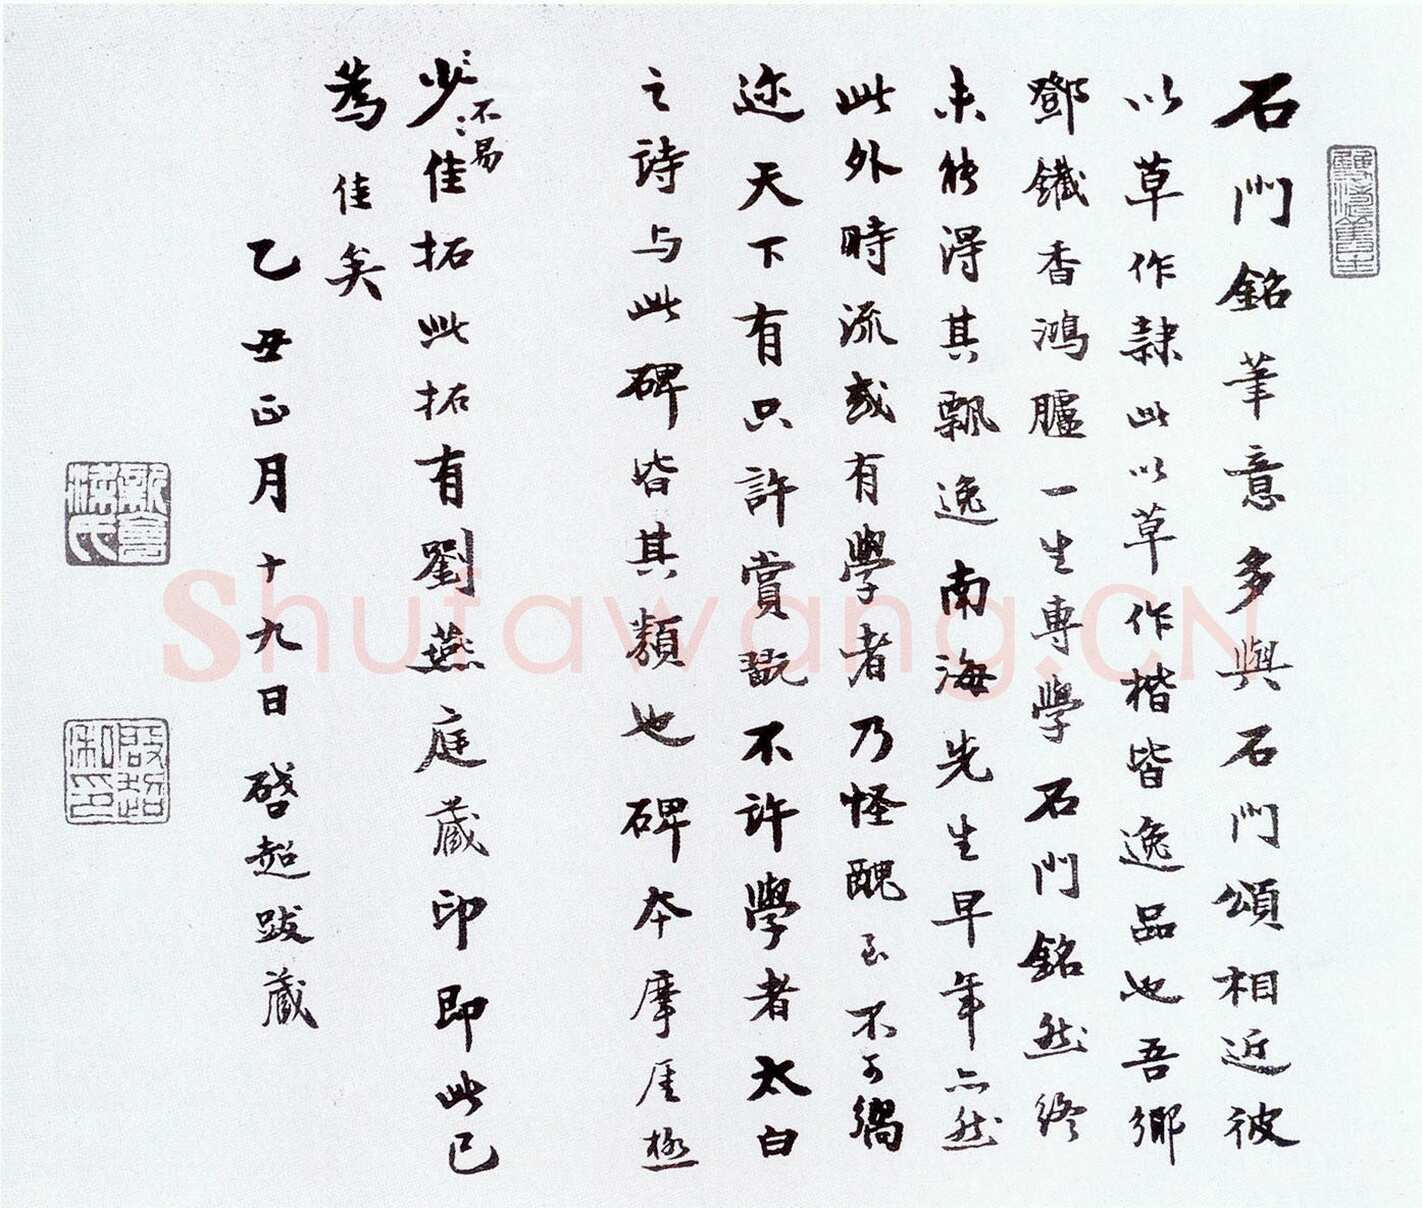 石門銘筆意多與石門頌相近彼
以草作隸此以草作楷皆逸品也吾鄉
鄧鐵香鴻臚一生專學石門銘然終
未能得其飄逸南海先生早年亦然
此外時流或有學者乃怪醜至不可嚮
迩天下有只許賞翫不許學者太白
之詩与此碑皆其類也碑本摩厓極
少佳拓此拓有劉燕庭藏印即此已
不易
為佳矣
乙丑正月十九日啓超跋藏
新會梁氏
啟超私印
Shufawang.CN